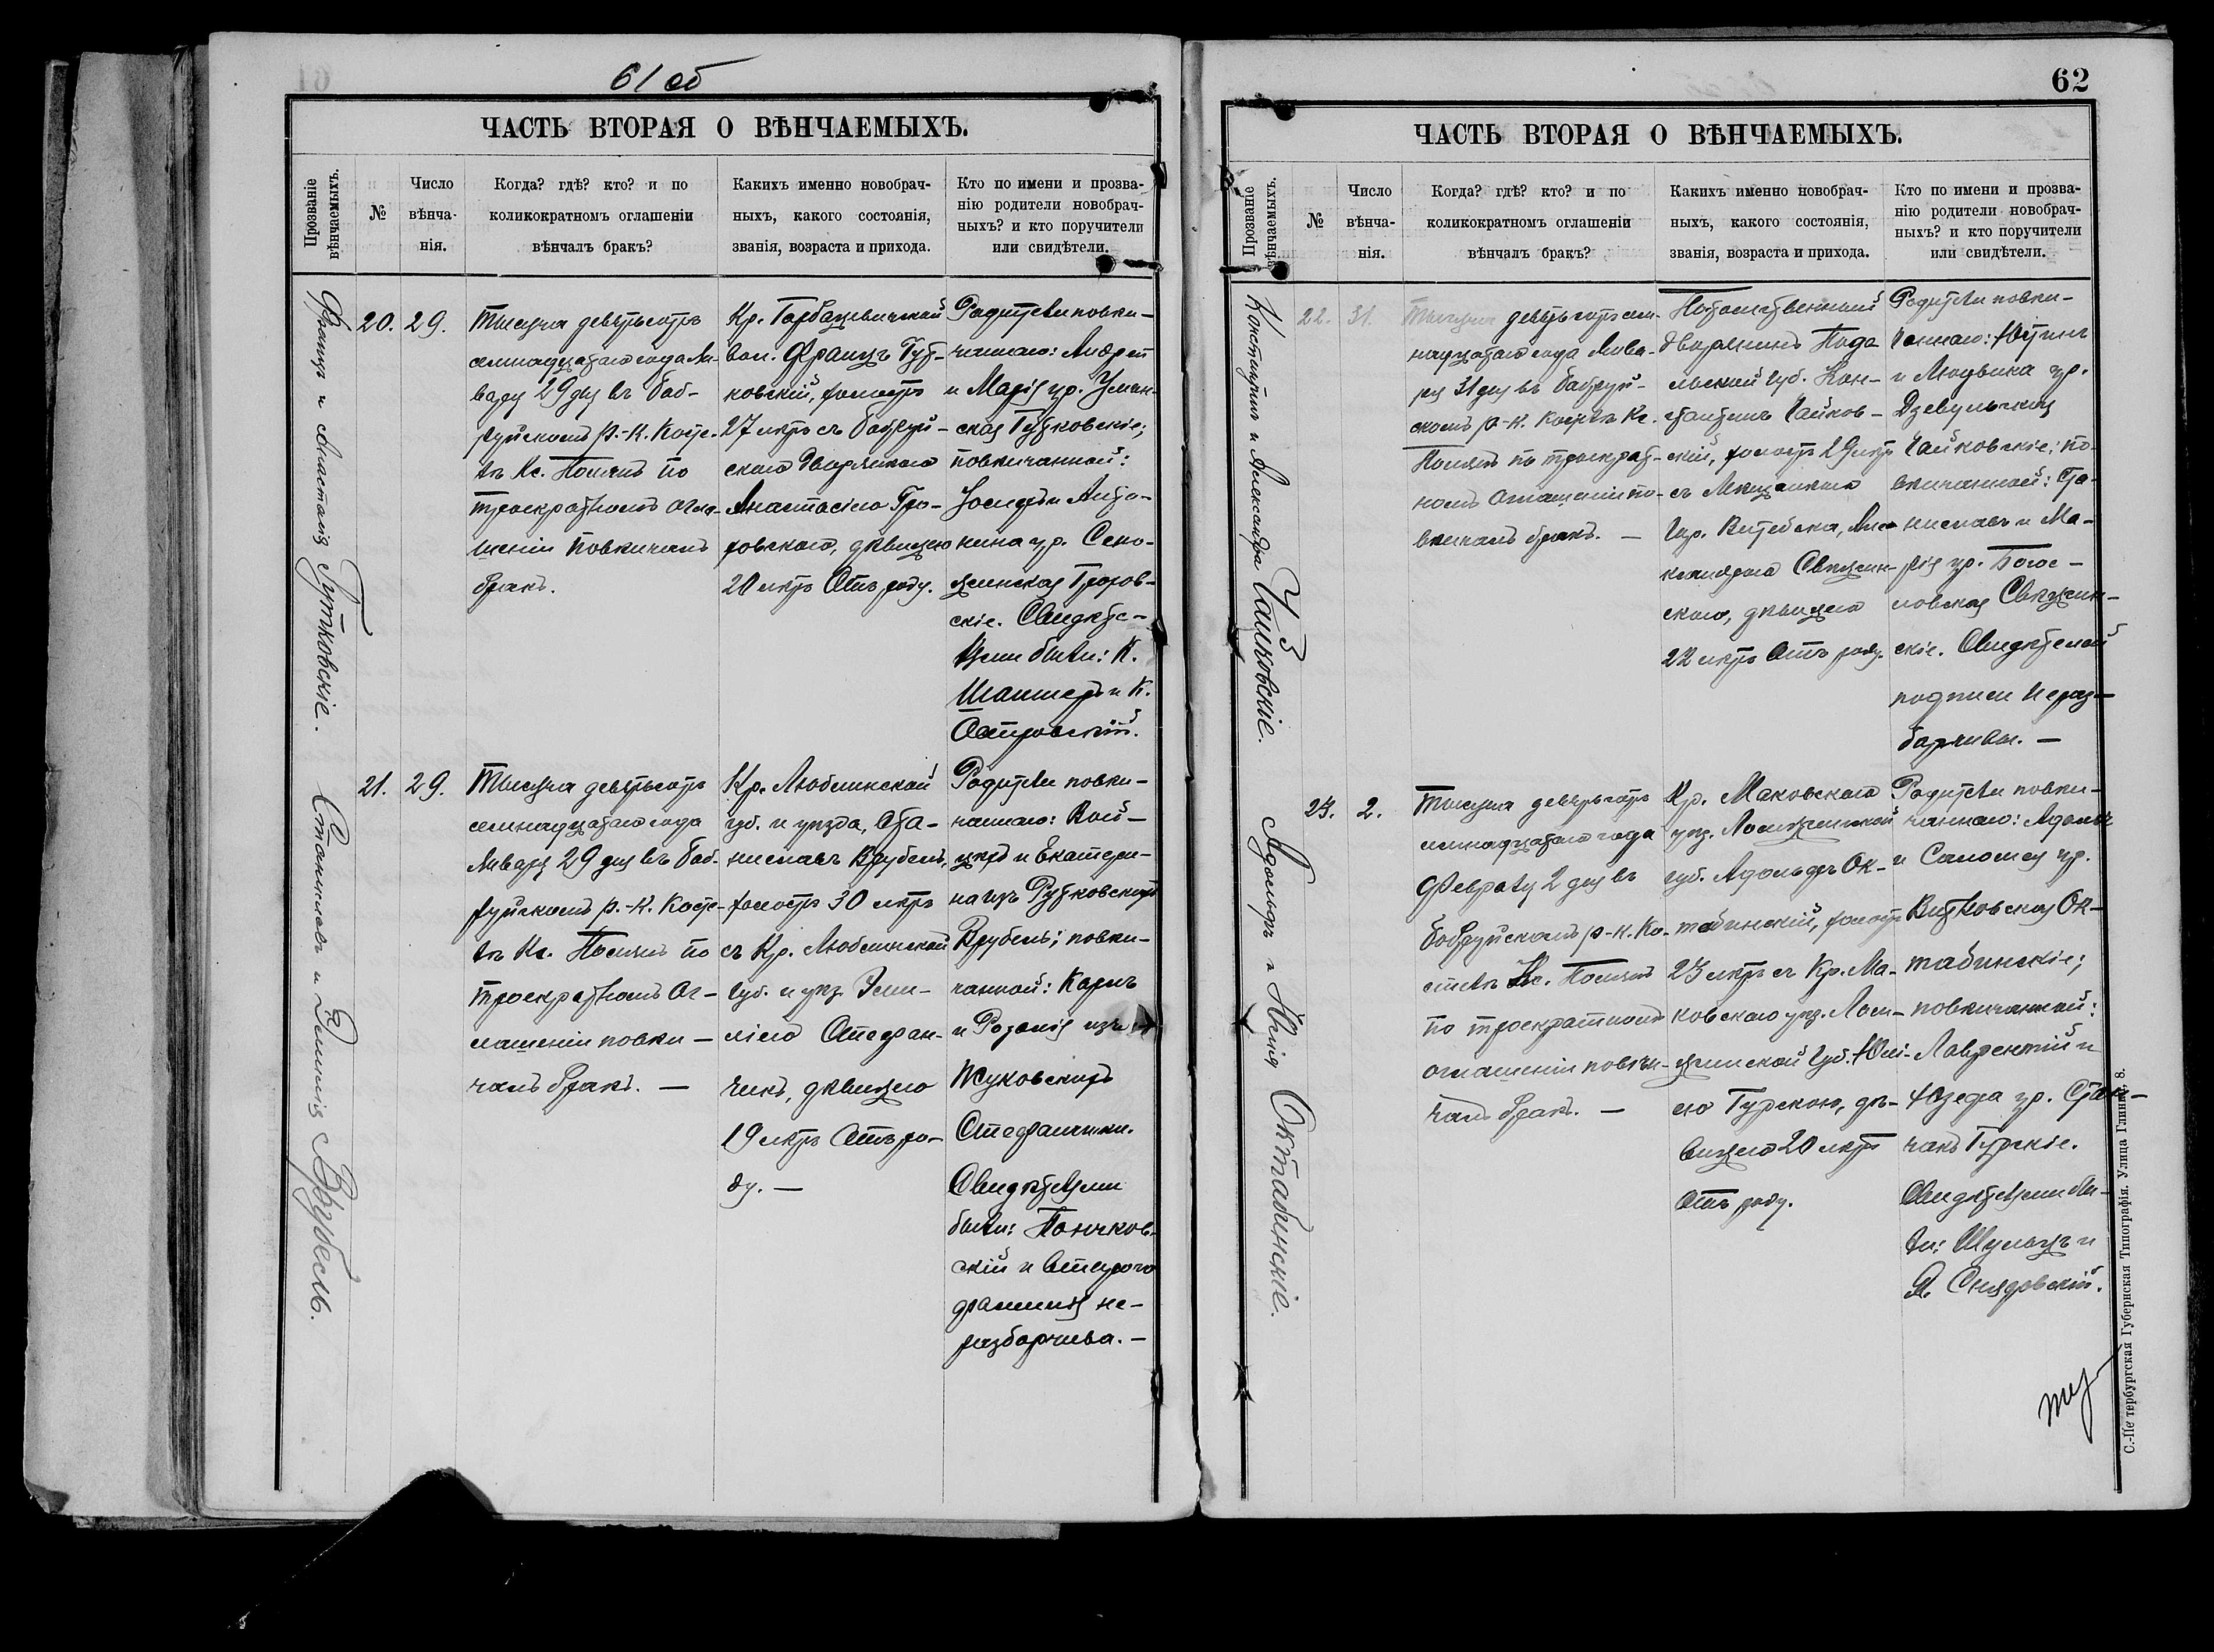 61 об
ЧАСТЬ ВТОРАЯ О ВѢНЧАЕМЫХЪ.
Прозваніе
вѣнчаемыхъ.
№
Число
вѣнча-
нія.
Когда? гдѣ? кто? и по
коликократномъ оглашеніи
вѣнчалъ бракъ?
Какихъ именно новобрач-
ныхъ, какого состоянія,
званія, возраста и прихода.
Кто по имени и прозва-
нію родители новобрач-
ныхъ? и кто поручители
или свидѣтели.
Францъ и Анастасія Гутковскіе.
20.
29.
Тысяча девятьсотъ
семнадцатаго года Ян-
варя 29 дня въ Боб-
руйскомъ р.-к. косте-
лѣ Кс. Помянъ по
троекратномъ огла-
шеніи повѣнчалъ
бракъ.
Кр. Горбацевичской
вол. Францъ Гут-
ковскій, холостъ
27 лѣтъ съ Бобруй-
скаго
Анастасіею Гро-
ховскаго, дѣвицею
20 лѣтъ отъ роду.
Родители повѣн-
чаннаго: Андрей
и Марія ур.
Гутковскіе;
повѣнчанной:
Іосифъ и Анто-
нина ур.
скіе. Свидѣте-
лями были: К.
и К.
Островскій.
Станиславъ и Эмилія Врубель.
21.
29.
Тысяча девятьсотъ
семнадцатаго года
Января 29 дня въ Боб-
руйскомъ р.-к. косте-
лѣ Кс. Помянъ по
троекратномъ ог-
лашеніи повѣн-
чалъ бракъ. —
Кр. Люблинской
губ. и уѣзда, Ста-
ниславъ Врубель,
холостъ 30 лѣтъ
съ Кр. Люблинской
губ. и уѣз. Эми-
ліею Стефан-
чикъ, дѣвицею
19 лѣтъ отъ ро-
ду. —
Родители повѣн-
чаннаго: Вой-
цѣхъ и Екатери-
на изъ Рутковскихъ
Врубель; повѣн-
чанной: Карлъ
и Розалія изъ
Жуковскихъ
Стефанчики.
Свидѣтелями
были: Пончков-
скій и втораго
фамилія не-
разборчива. —
62
ЧАСТЬ ВТОРАЯ О ВѢНЧАЕМЫХЪ.
Прозваніе
вѣнчаемыхъ.
№
Число
вѣнча-
нія.
Когда? гдѣ? кто? и по
коликократномъ оглашеніи
вѣнчалъ бракъ?
Какихъ именно новобрач-
ныхъ, какого состоянія,
званія, возраста и прихода.
Кто по имени и прозва-
нію родители новобрач-
ныхъ? и кто поручители
или свидѣтели.
Константинъ и Александра Чайковскіе.
22.
31.
Тысяча девятьсотъ сем-
надцатаго года Янва-
ря 31 дня въ Бобруй-
скомъ р-к. костелѣ Кс.
Помянъ по троекрат-
номъ оглашеніи по-
вѣнчалъ бракъ. —
Потомственный
дворянинъ Подо
льской губ. Кон-
стантинъ Чайков-
скій, холостъ 29 лѣтъ
съ Мѣщанкою
гор. Витебска, Але
ксандрою Свѣцин-
скою, дѣвицею
22 лѣтъ отъ роду.
Родители повѣн-
чаннаго: Юстинъ
и Людвика ур.
Дзевульская
Чайковскіе; по-
вѣнчанной: Ста-
ниславъ и Ма-
рія ур. Богос-
ловская Свѣцин-
скіе. Свидѣтелей
подписи нераз-
борчивы. —
Адольфъ и Юлія Октабинскіе.
23.
2.
Тысяча девятьсотъ
семнадцатаго года
Февраля 2 дня въ
Бобруйскомъ р-к. ко-
стелѣ Кс. Помянъ
по троекратномъ
оглашеніи повѣн-
чалъ бракъ. —
Кр. Маковскаго
уѣз. Ломжинской
губ. Адольфъ Ок-
табинскій, холостъ
23 лѣтъ съ Кр. Ма-
ковскаго уѣз. Лом-
жинской губ. Юлі-
ею Гурскою, дѣ-
вицею 20 лѣтъ
отъ роду.
Родители повѣн-
чаннаго: Адамъ
и Саломея ур.
Витковская Ок-
табинскіе;
повѣнчанной:
Лаврентій и
Юзефа ур.
Гурскіе.
Свидѣтелями бы-
ли: Шульцъ и
А. Снядовскій.
С.-Петербургская Губернская Типографія. Улица Глинки, 8.